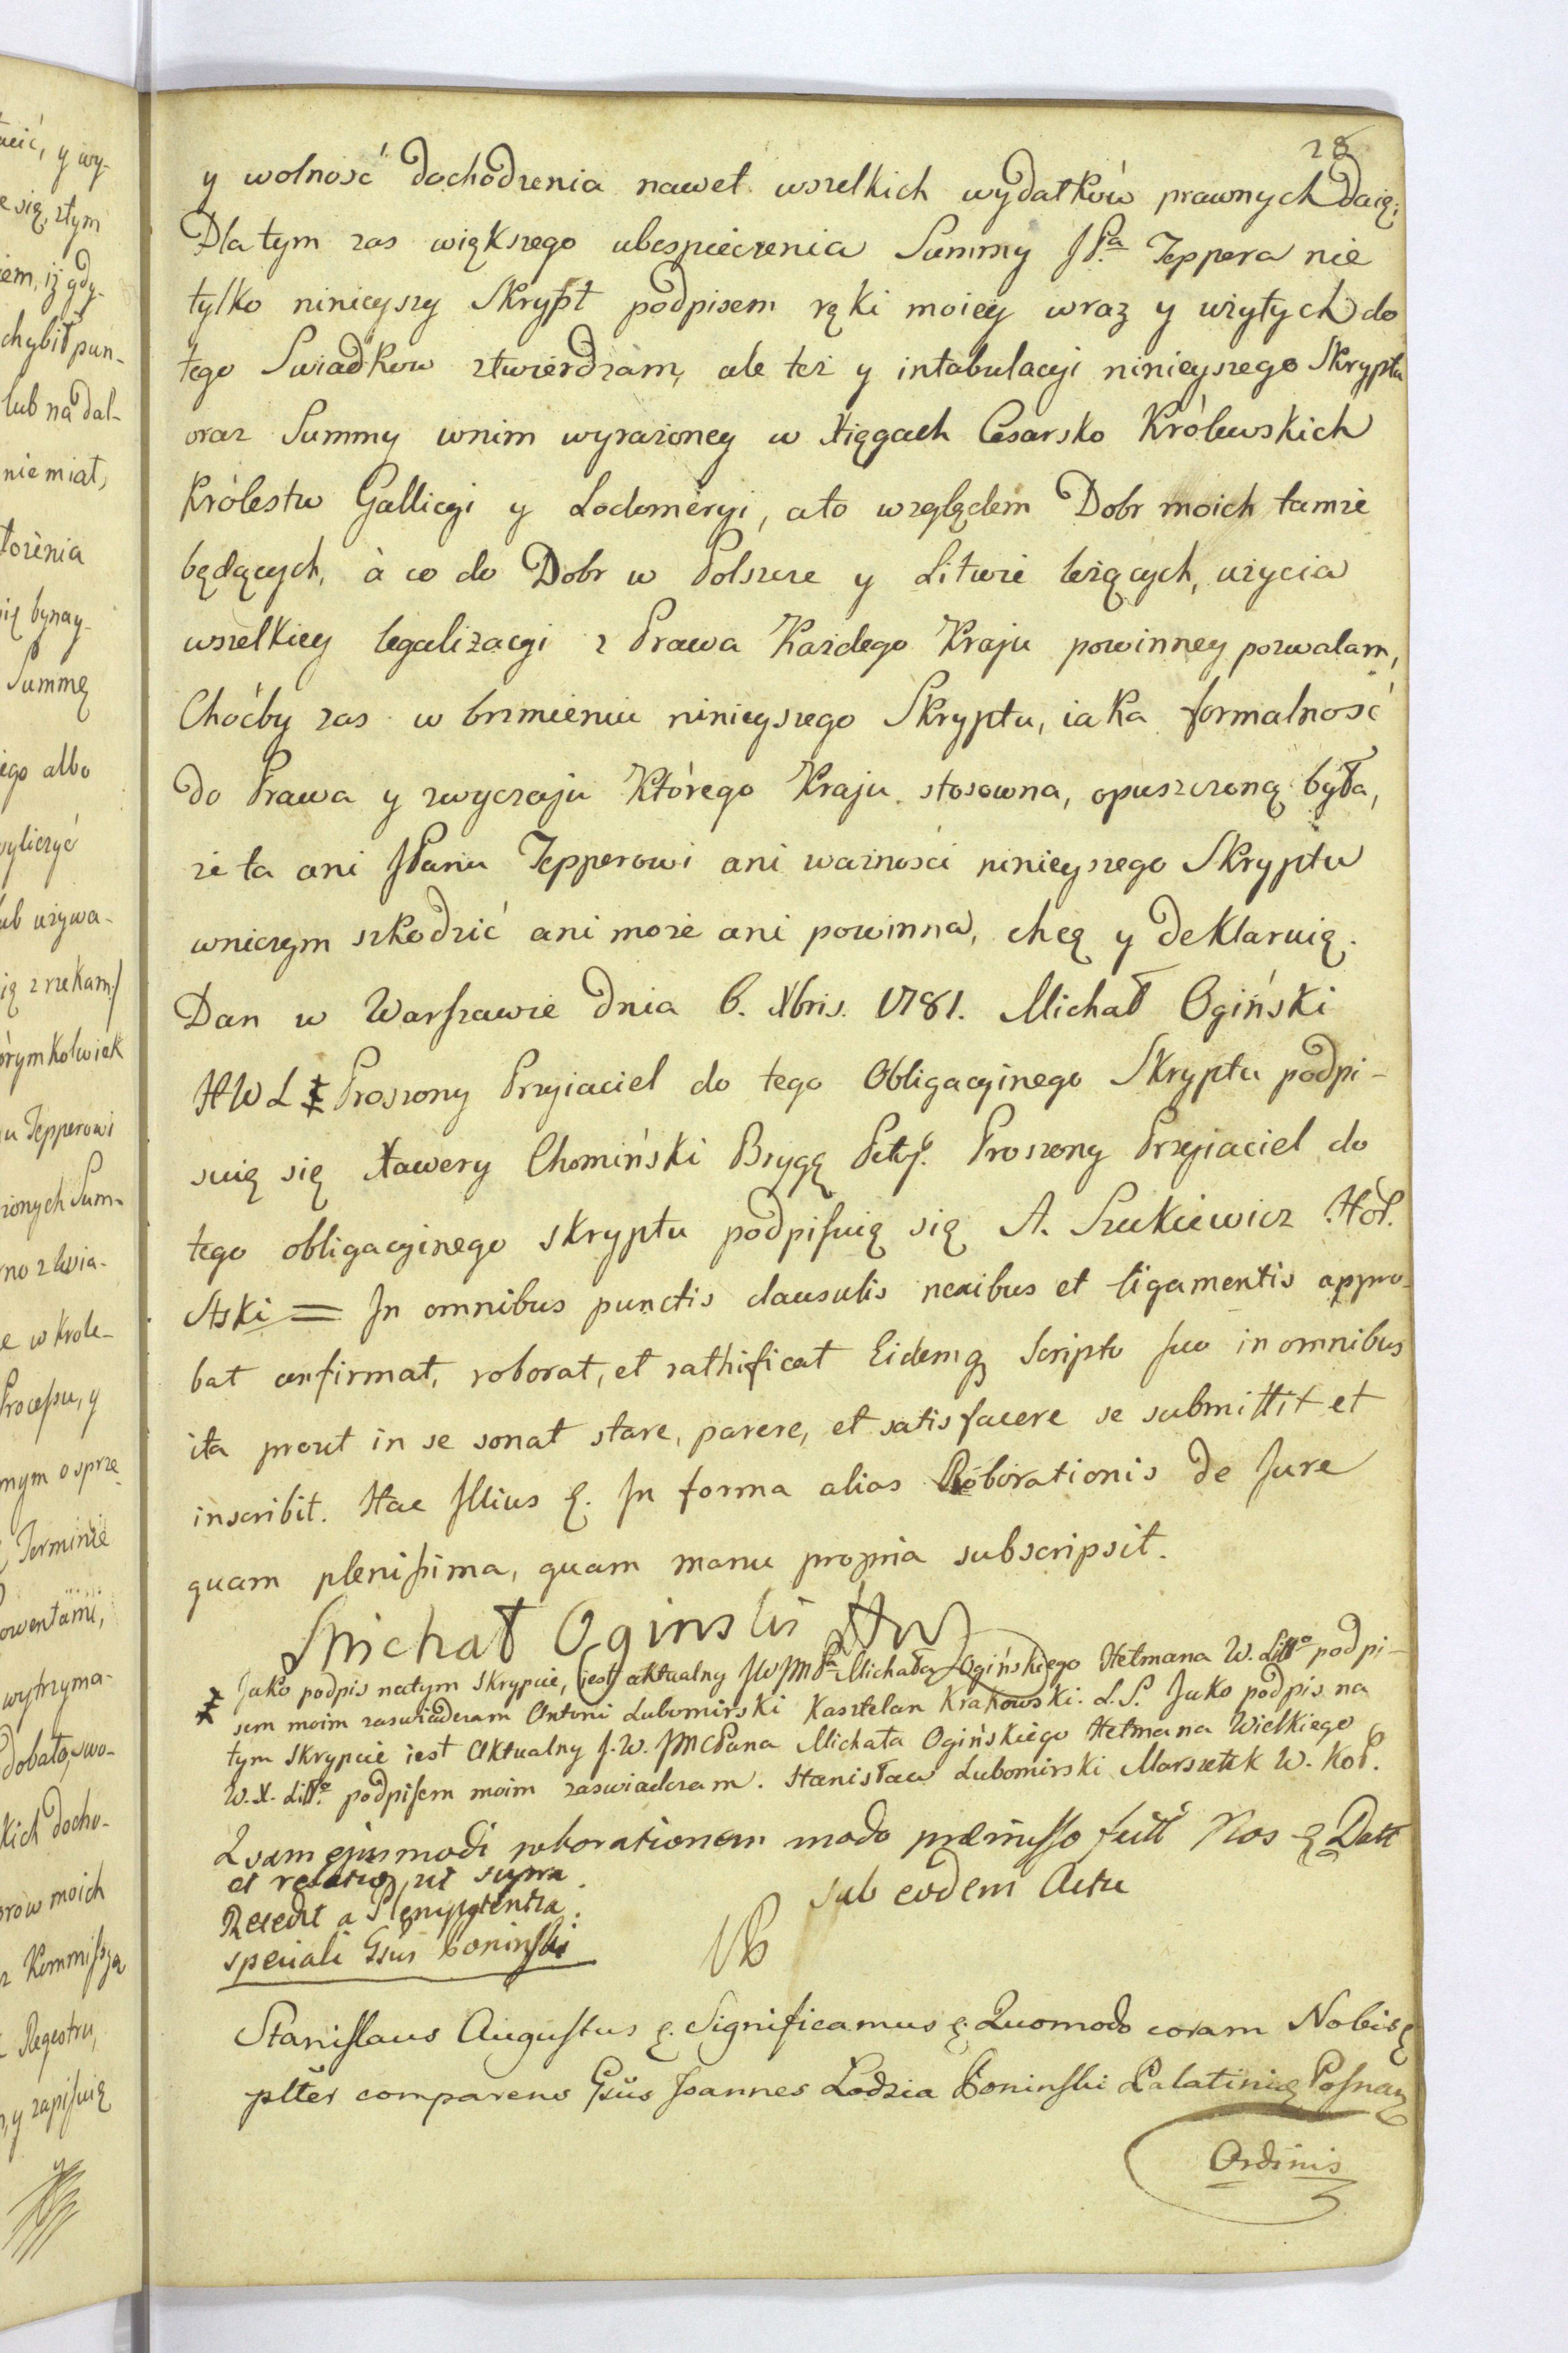 28
y wolność dochodzenia nawet wszelkich wydatków prawnych daię;
Dla tym zas większego ubespieczenia Summy JPa Teppera nie
tylko ninieyszy Skrypt podpisem ręki moiey wraz y użytych do
tego Swiadkow ztwierdzam, ale też y intabulacyi ninieyszego Skryptu
oraz Summy wnim wyrażoney w Xięgach Cesarsko Królewskich
Królestw Gallicyi y Lodomeryi, ato względem Dobr moich tamże
będących, à co do Dobr w Polszcze y Litwie leżących, użycia
wszelkiey legalizacyi z Prawa Każdego Kraju powinney pozwalam,
Choćby zas w brzmieniu ninieyszego Skryptu, iaka formalność
do Prawa y zwyczaju Którego Kraju stosowna, opuszczoną była,
że ta ani JPanu Tepperowi ani ważności ninieyszego Skryptu
wniczym szkodzić ani może ani powinna, chcę y deklaruię.
Dan w Warszawie dnia 6. Xbris. 1781. Michał Ogiński
HWL ‡ Proszony Przyiaciel do tego Obligacyinego Skryptu podpi-
suię się Xawery Chomiński Brygę Petyh. Proszony Przyiaciel do
tego obligacyinego skryptu podpisuię się A. Szukiewicz
= In omnibus punctis clausulis nexibus et ligamentis appro-
bat confirmat, roborat, et rathificat Eidemq Scripto suo in omnibus
ita prout in se sonat stare, parere, et satisfacere se submittit et
inscribit. Hac Illius &. In forma alias Roborationis de Jure
quam plenissima, quam manu propria subscripsit.
Michał Oginski HW
‡ Jako podpis natym Skrypcie, iest aktualny JWJMPa Michała Ogińskiego Hetmana W. Litto podpi-
sem moim zaswiadczam Antoni Lubomirski Kasztelan Krakowski. L.S. Jako podpis na
tym Skrypcie iest Aktualny J.W. JMcPana Michała Ogińskiego Hetmana Wielkiego
W.X. Litto podpisem moim zaswiadczam. Stanisław Lubomirski Marszałek W. Kor.
Quam ejusmodi roborationem modo præmisso Nos & Datt
et relatio ut supra.
sub eodem Actu
Recedit a Plenipotentia
speciali Gsus Boninski
Stanislaus Augustus &. Significamus &. Quomodo coram Nobis &
plter comparens Gsus Joannes Lodzia Boninski Palatinię Posnan
Ordinis
acić, y wy-
e się, ztym
iem, iż gdy-
chybił pun-
lub na dal-
nie miał,
łożenia
ię bynay-
Summę
iego albo
wyliczyć
ub używa-
ię zrzekam/
órymkolwiek
u Tepperowi
zonych Sum-
no zwia-
e w Krole-
Processu, y
mym osprze
Terminie
owentami,
wytrzyma-
dobało, swo-
kich docho-
orow moich
z Kommissyą
Regestru,
y zapisuię
y